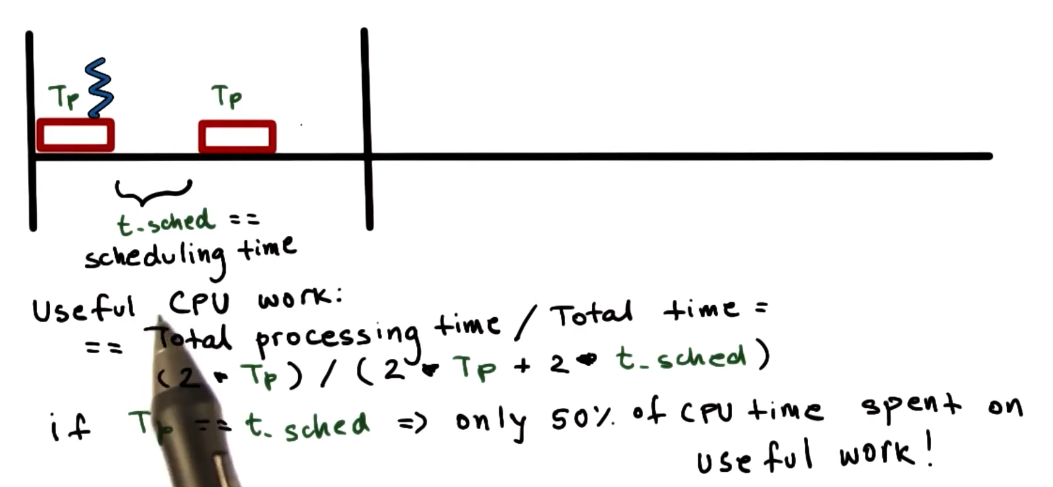 Tp Tp
t_sched ==
scheduling time
Useful CPU work:
== Total processing time / Total time =
(2 * Tp) / (2 * Tp + 2 * t_sched)
if Tp == t_sched => only 50% of CPU time spent on
useful work!